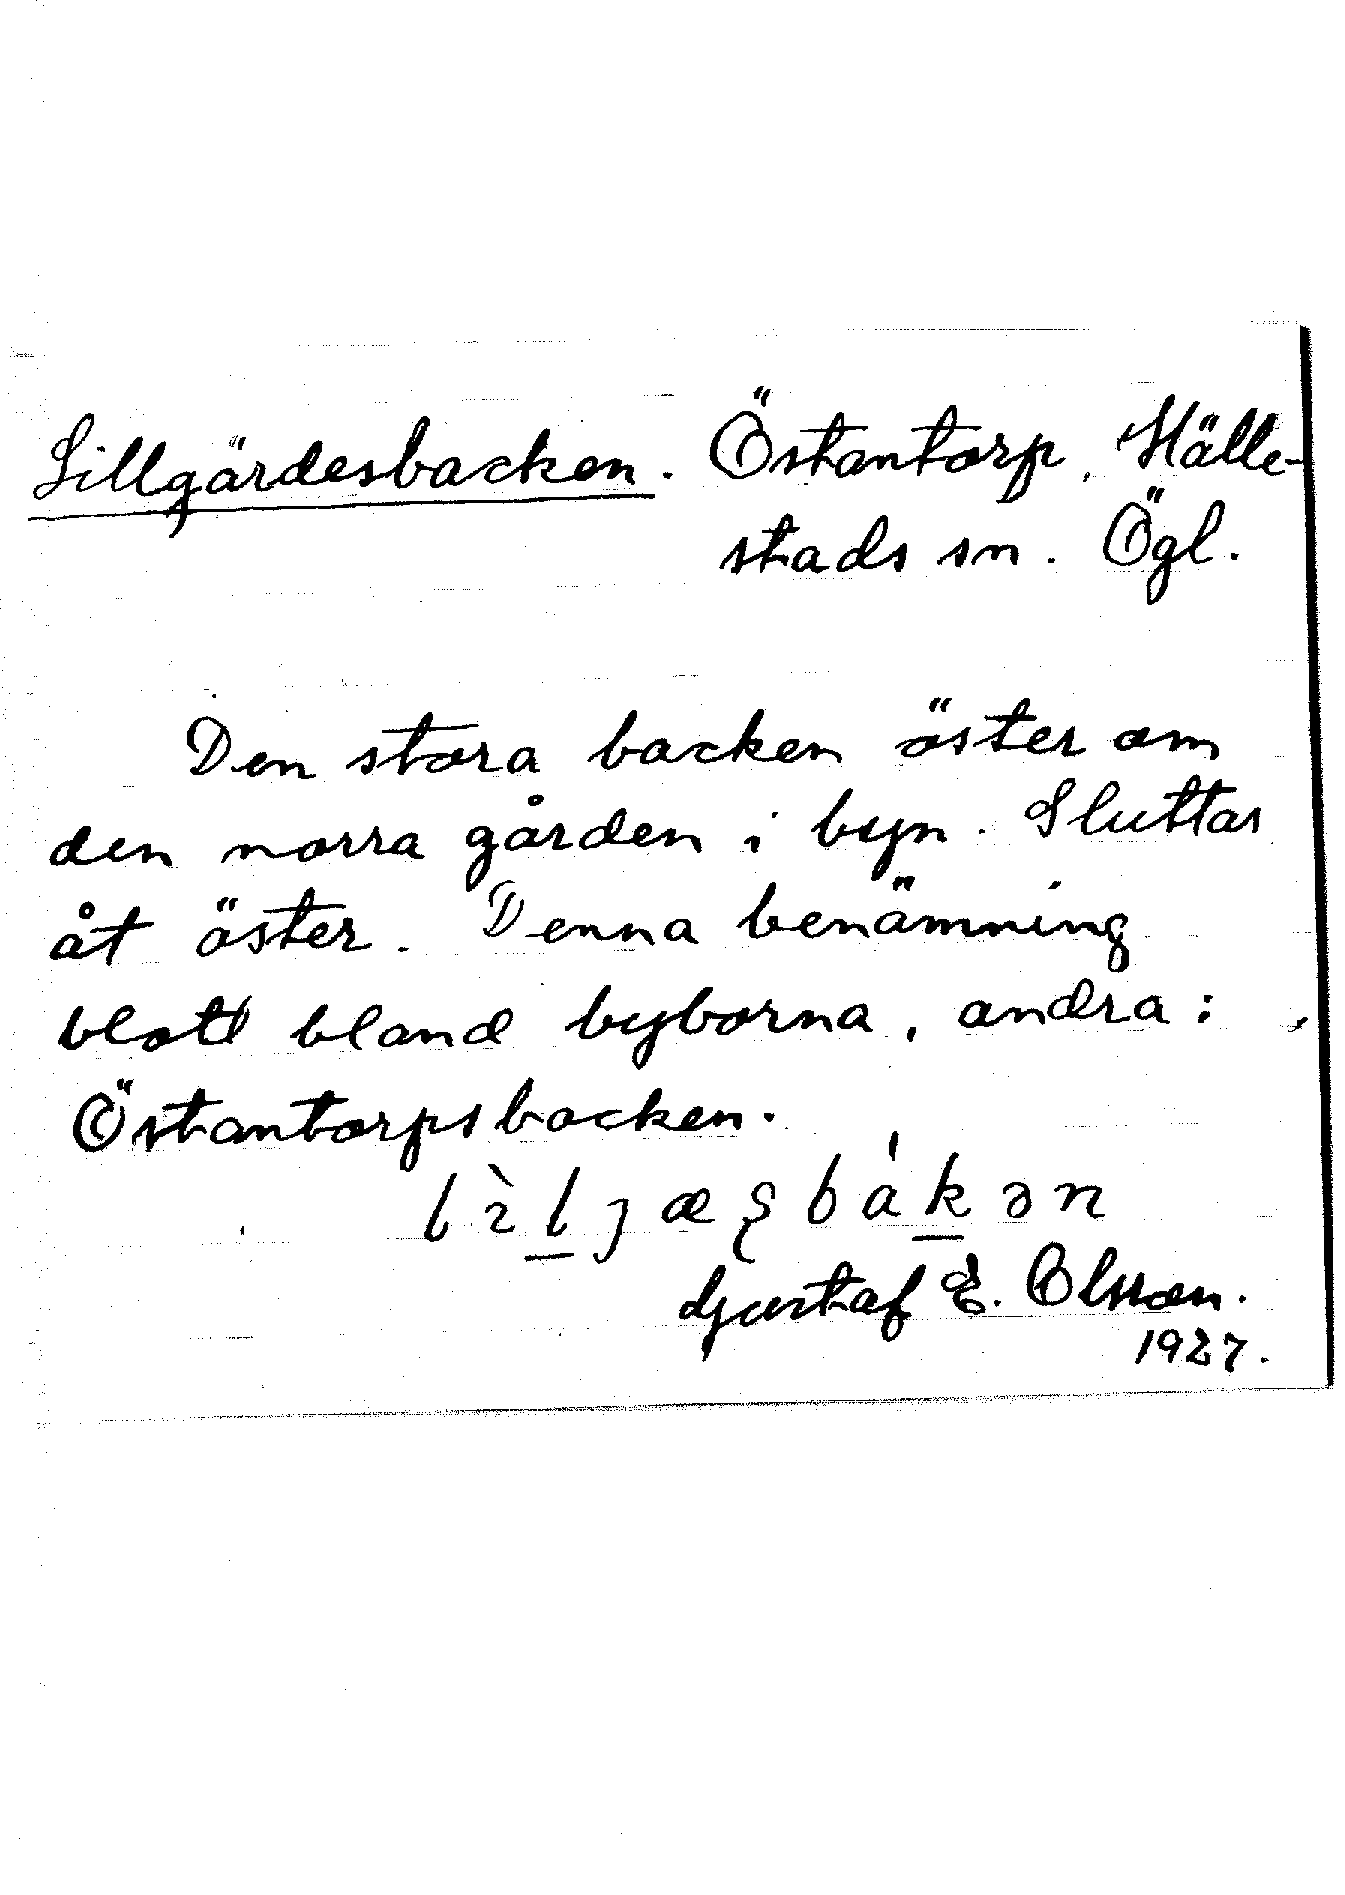 Lillgärdesbacken. Östantorp, Hälle-
stads sn. Ögl.
Den stora backen öster om
den norra gården i byn. Sluttar
åt öster. Denna benämning
blott bland byborna, andra:
Östantorpsbacken.
lìl̲ȷæʂba̍k̲ən
Gustaf E. Olsson.
1927.